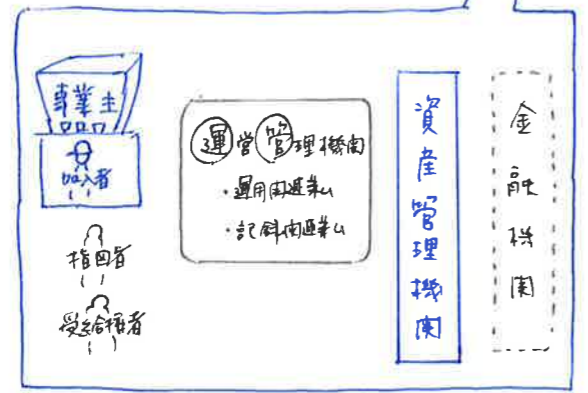 事業主
加入者
指図者
受給権者
運営管理機関
・運用関連業ム
・記録関連業ム
資産管理機関
金融機関